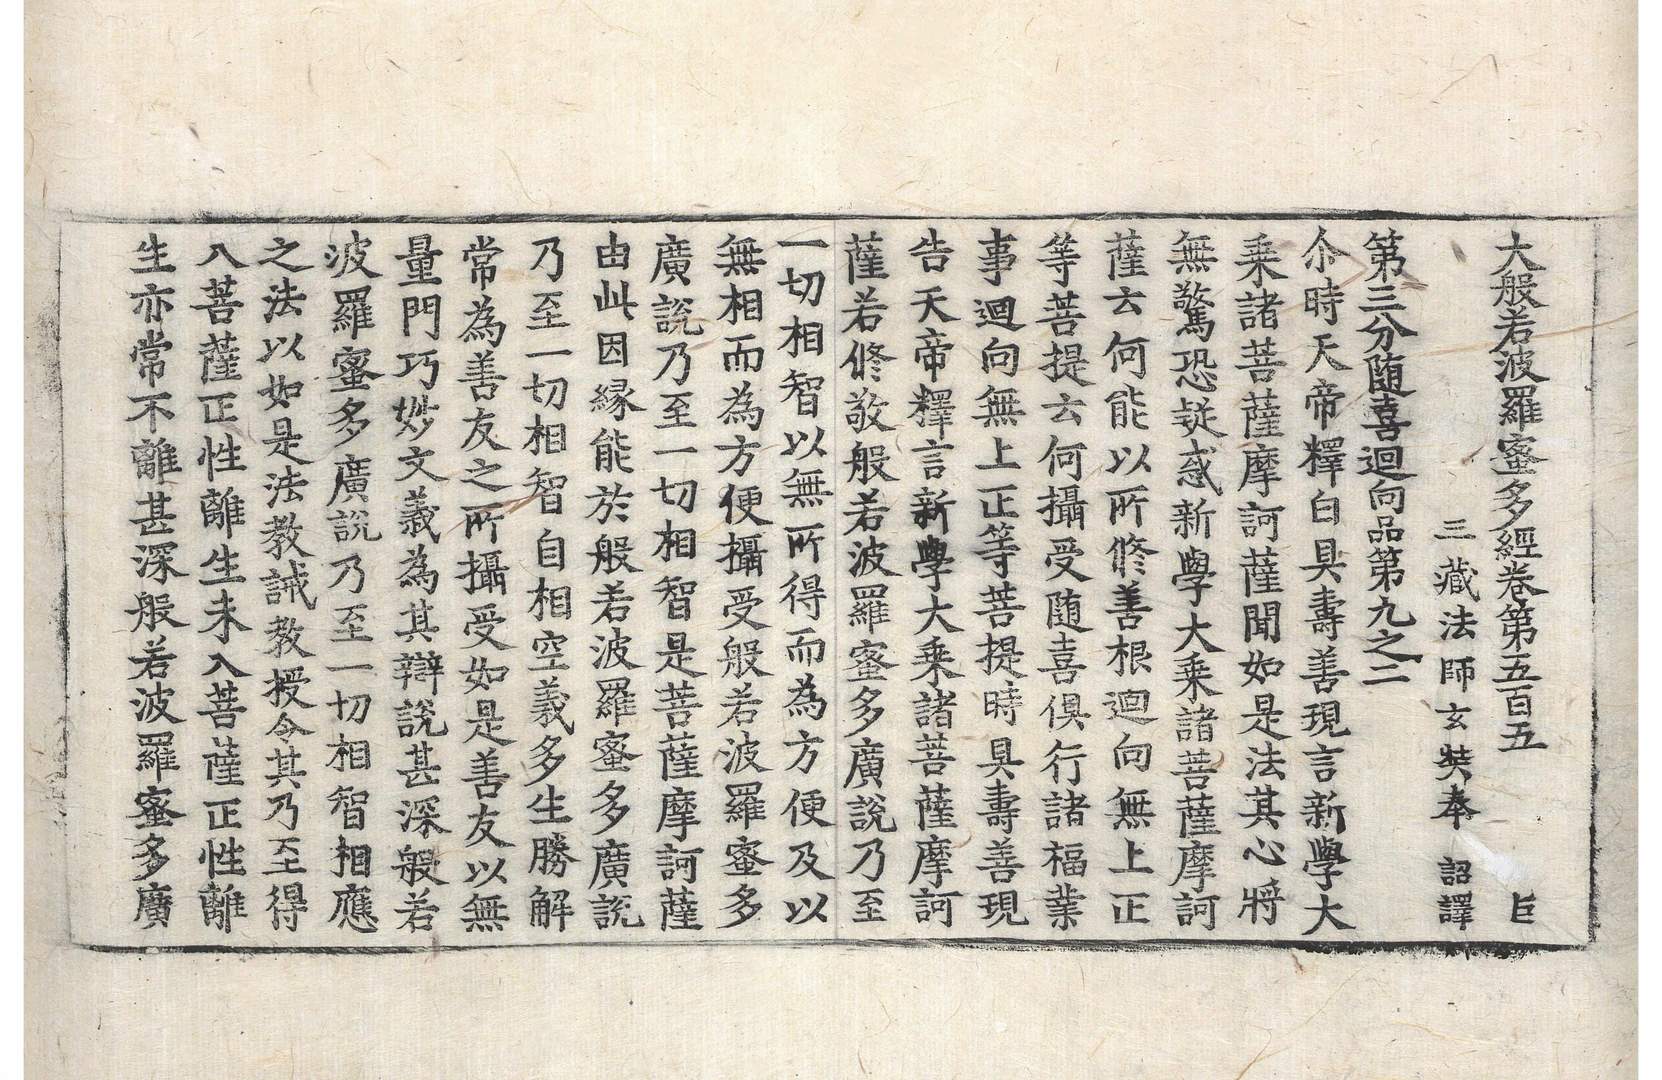 大般若波羅蜜多經卷第五百五 巨
三藏法師玄奘奉 詔譯
第三分随喜迴向品第九之二
尒時天帝釋白具壽善現言新學大
乗諸菩薩摩訶薩聞如是法其心將
無驚恐疑惑新學大乗諸菩薩摩訶
薩云何能以所修善根迴向無上正
等菩提云何攝受随喜俱行諸福業
事迴向無上正等菩提時具壽善現
告天帝釋言新學大乗諸菩薩摩訶
薩若修敬般若波羅蜜多廣說乃至
一切相智以無所得而為方便及以
無相而為方便攝受般若波羅蜜多
廣說乃至一切相智是菩薩摩訶薩
由此因縁能於般若波羅蜜多廣說
乃至一切相智自相空義多生勝解
常為善友之所攝受如是善友以無
量門巧妙文義為其辯說甚深般若
波羅蜜多廣說乃至一切相智相應
之法以如是法教誡教授令其乃至得
入菩薩正性離生未入菩薩正性離
生亦常不離甚深般若波羅蜜多廣